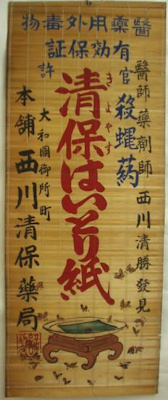 醫藥用外毒物
有効保証
官許
醫師藥剤師 西川清勝發見
殺蠅葯
きよやす
清保はいとり紙
大和國御所町
本舗 西川清保藥局